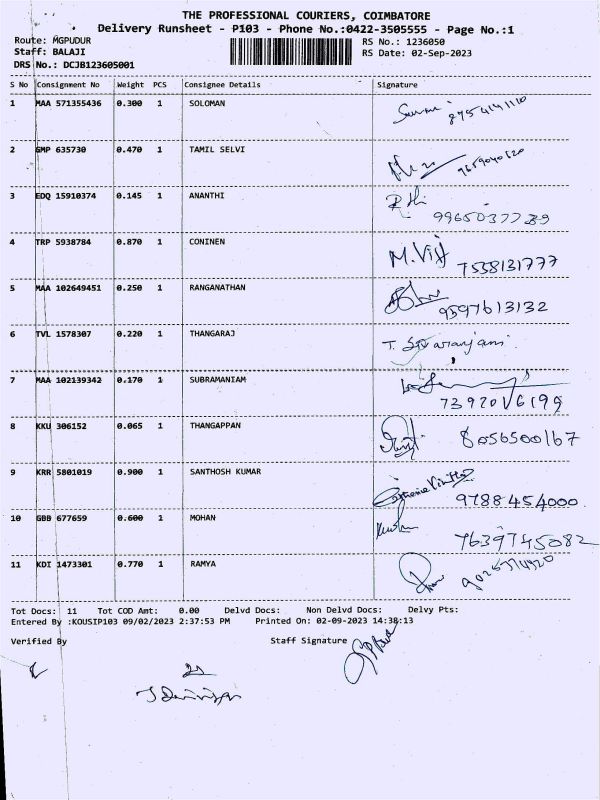 THE PROFESSIONAL COURIERS, COIMBATORE
Delivery Runsheet - P103 - Phone No.:0422-3505555 - Page No.:1
Route: MGPUDUR RS No.: 1236050
Staff: BALAJI RS Date: 02-Sep-2023
DRS No.: DCJB123605001
S No Consignment No Weight PCS Consignee Details Signature
1 MAA 571355436 0.300 1 SOLOMAN 8754141110
2 GMP 635730 0.470 1 TAMIL SELVI
3 EDQ 15910374 0.145 1 ANANTHI 9965037739
4 TRP 5938784 0.870 1 CONINEN M.Vij 7558131777
5 MAA 102649451 0.250 1 RANGANATHAN 9597613132
6 TVL 1578307 0.220 1 THANGARAJ T. Sivaranjani
7 MAA 102139342 0.170 1 SUBRAMANIAM
8 KKU 306152 0.065 1 THANGAPPAN 8056500167
9 KRR 5801019 0.900 1 SANTHOSH KUMAR 9788454000
10 GBB 677659 0.600 1 MOHAN 7639745082
11 KDI 1473301 0.770 1 RAMYA
Tot Docs: 11 Tot COD Amt: 0.00 Delvd Docs: Non Delvd Docs: Delvy Pts:
Entered By :KOUSIP103 09/02/2023 2:37:53 PM Printed On: 02-09-2023 14:38:13
Verified By Staff Signature